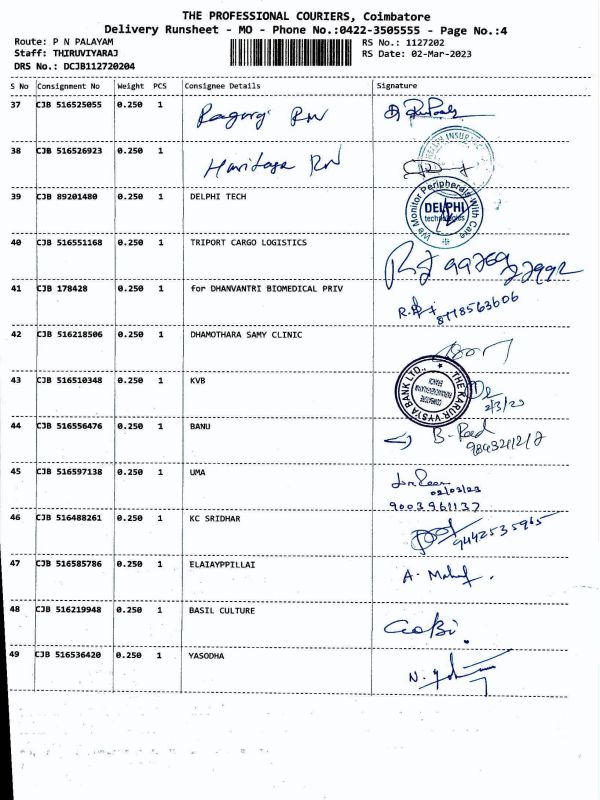 THE PROFESSIONAL COURIERS, Coimbatore
Delivery Runsheet - MO - Phone No.:0422-3505555 - Page No.:4
Route: P N PALAYAM RS No.: 1127202
Staff: THIRUVIYARAJ RS Date: 02-Mar-2023
DRS No.: DCJB112720204
S No Consignment No Weight PCS Consignee Details Signature
37 CJB 516525055 0.250 1
38 CJB 516526923 0.250 1
39 CJB 89201480 0.250 1 DELPHI TECH
We Monitor Peripherals With Care
DELPHI
technologies
40 CJB 516551168 0.250 1 TRIPORT CARGO LOGISTICS
41 CJB 178428 0.250 1 for DHANVANTRI BIOMEDICAL PRIV
8778563606
42 CJB 516218506 0.250 1 DHAMOTHARA SAMY CLINIC
43 CJB 516510348 0.250 1 KVB
THE KARUR VYSYA BANK LTD.,
COIMBATORE
BRANCH
44 CJB 516556476 0.250 1 BANU
45 CJB 516597138 0.250 1 UMA
02/03/23
9003961137
46 CJB 516488261 0.250 1 KC SRIDHAR
9442535965
47 CJB 516585786 0.250 1 ELAIAYPPILLAI
48 CJB 516219948 0.250 1 BASIL CULTURE
GoBi.
49 CJB 516536420 0.250 1 YASODHA